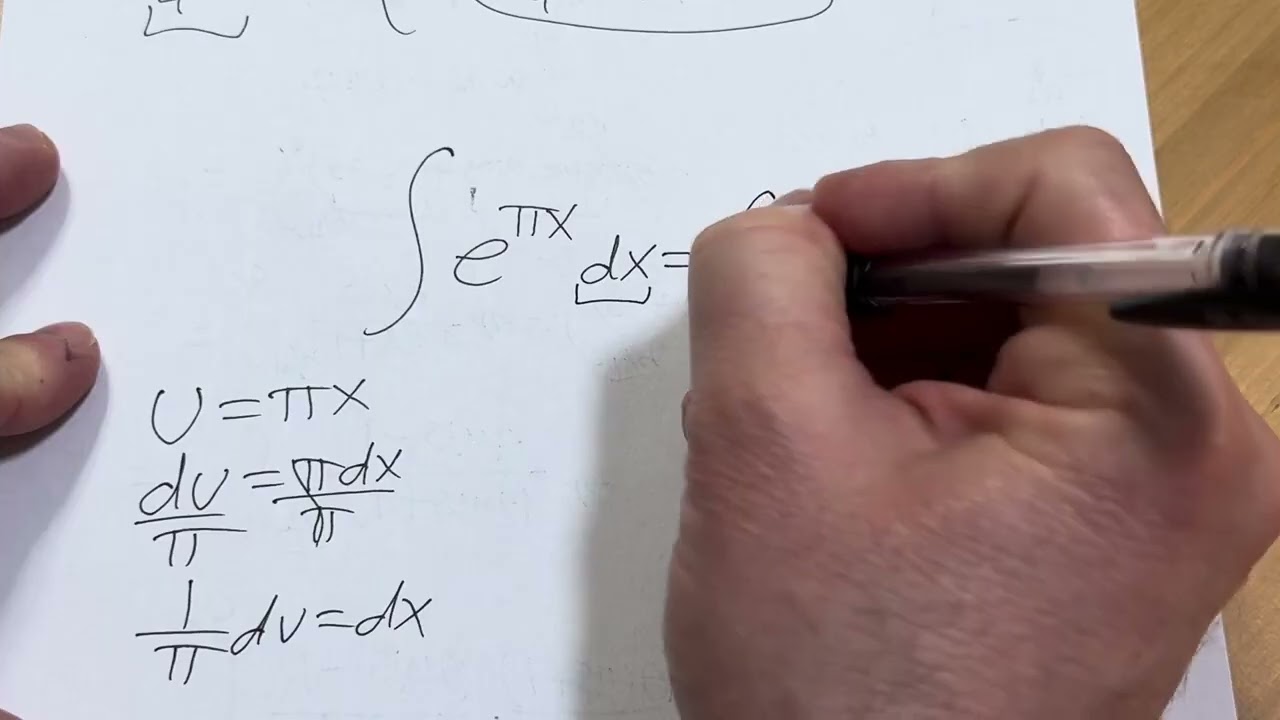 ∫ e^{πx} dx = ∫
U = πx
du/π = πdx/π
1/π du = dx